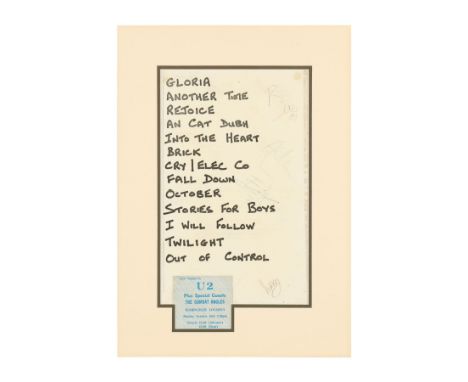 GLORIA
ANOTHER TIME
REJOICE
AN CAT DUBH
INTO THE HEART
BRICK
CRY | ELEC CO
FALL DOWN
OCTOBER
STORIES FOR BOYS
I WILL FOLLOW
TWILIGHT
OUT OF CONTROL
U2
Plus Special Guests